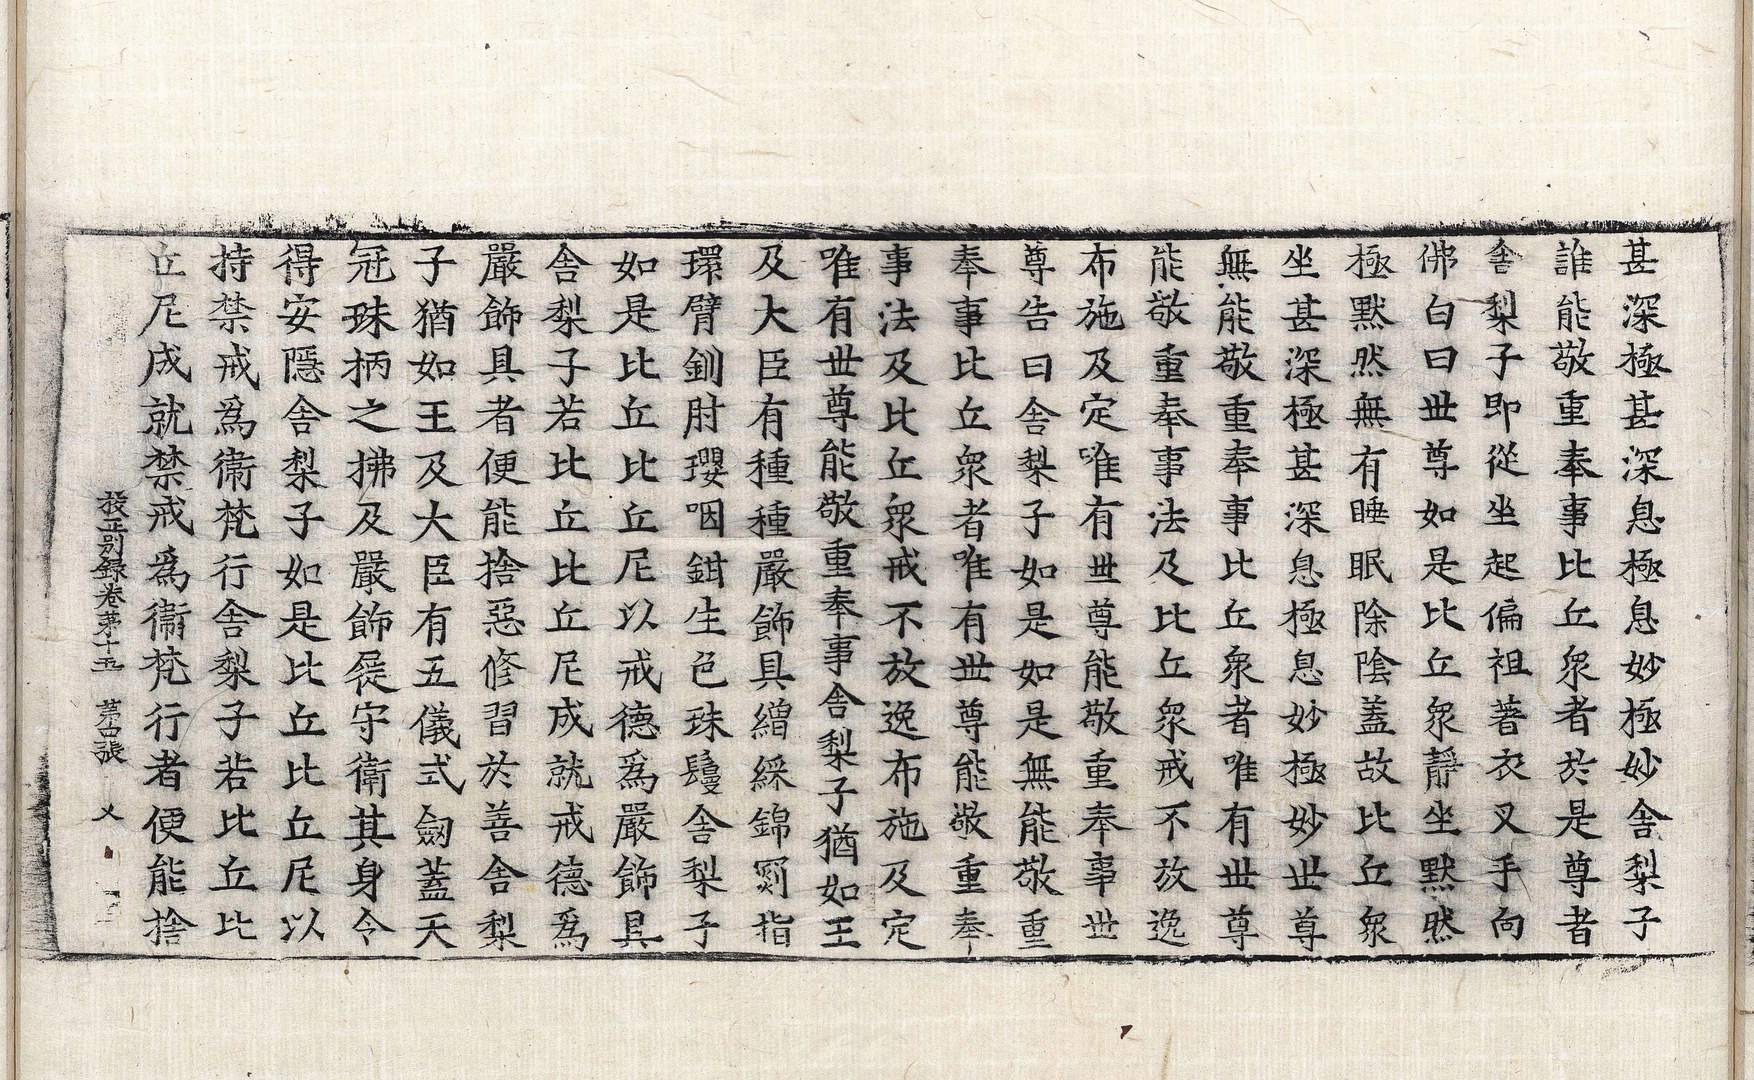 甚深極甚深息極息妙極妙舎梨子
誰能敬重奉事比丘衆者於是尊者
舎梨子即從坐起偏袒著衣叉手向
佛白曰世尊如是比丘衆靜坐默然
極默然無有睡眠除陰蓋故比丘衆
坐甚深極甚深息極息妙極妙世尊
無能敬重奉事比丘衆者唯有世尊
能敬重奉事法及比丘衆戒不放逸
布施及定唯有世尊能敬重奉事世
尊告曰舎梨子如是如是無能敬重
奉事比丘衆者唯有世尊能敬重奉
事法及比丘衆戒不放逸布施及定
唯有世尊能敬重奉事舎梨子猶如王
及大臣有種種嚴飾具繒綵錦罽指
環臂釧肘瓔咽鉗生色珠鬘舎梨子
如是比丘比丘尼以戒德爲嚴飾具
舎梨子若比丘比丘尼成就戒德爲
嚴飾具者便能捨惡修習於善舎梨
子猶如王及大臣有五儀式劒蓋天
冠珠柄之拂及嚴飾屣守衛其身令
得安隱舎梨子如是比丘比丘尼以
持禁戒爲衛梵行舎梨子若比丘比
丘尼成就禁戒爲衛梵行者便能捨
校正别錄卷苐十五 苐古張 乂